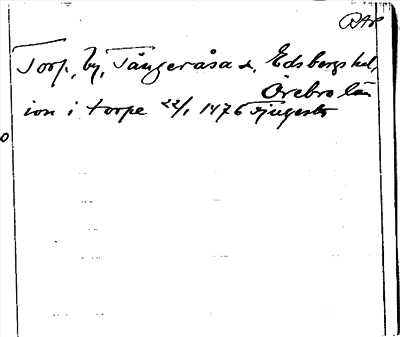 RAP
Torp, by, Tångeråsa s, Edsbergs hd,
Örebro län
ion i torpe 22/1 1476